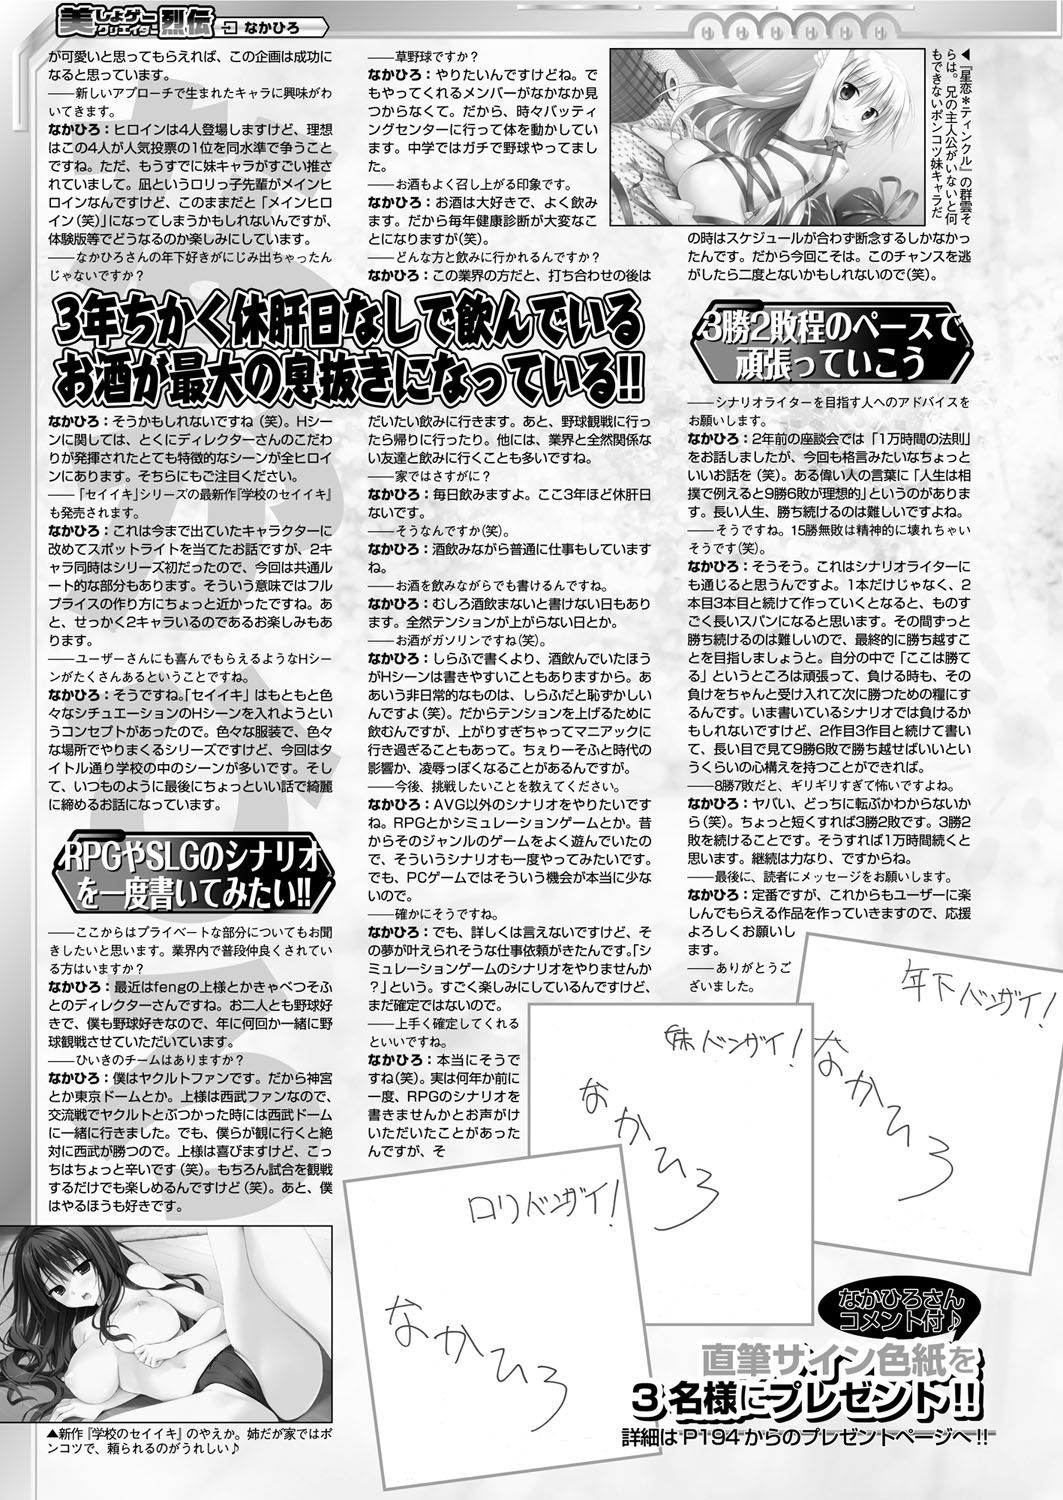 美しょゲークリエイター烈伝 なかひろ
が可愛いと思ってもらえれば、この企画は成功に
なると思っています。
――新しいアプローチで生まれたキャラに興味がわ
いてきます。
なかひろ：ヒロインは4人登場しますけど、理想
はこの4人が人気投票の1位を同水準で争うこと
ですね。ただ、もうすでに妹キャラがすごい推さ
れていまして。凪というロリっ子先輩がメインヒ
ロインなんですけど、このままだと「メインヒ
ロイン（笑）」になってしまうかもしれないんですが、
体験版等でどうなるのか楽しみにしています。
――なかひろさんの年下好きがにじみ出ちゃったん
じゃないですか？
3年ちかく休肝日なしで飲んでいる
お酒が最大の息抜きになっている!!
なかひろ：そうかもしれないですね（笑）。Hシー
ンに関しては、とくにディレクターさんのこだわ
りが発揮されたとても特徴的なシーンが全ヒロイ
ンにあります。そちらにもご注目ください。
――「セイイキ」シリーズの最新作『学校のセイイキ』
も発売されます。
なかひろ：これは今まで出ていたキャラクターに
改めてスポットライトを当てたお話ですが、2キ
ャラ同時はシリーズ初だったので、今回は共通ル
ート的な部分もあります。そういう意味ではフル
プライスの作り方にちょっと近かったですね。あ
と、せっかく2キャラいるのであるお楽しみもあ
ります。
――ユーザーさんにも喜んでもらえるようなHシー
ンがたくさんあるということですね。
なかひろ：そうですね。「セイイキ」はもともと色
々なシチュエーションのHシーンを入れようとい
うコンセプトがあったので。色々な服装で、色々
な場所でやりまくるシリーズですけど、今回はタ
イトル通り学校の中のシーンが多いです。そし
て、いつものように最後にちょっといい話で綺麗
に締めるお話になっています。
RPGやSLGのシナリオ
を一度書いてみたい!!
――ここからはプライベートな部分についてもお聞
きしたいと思います。業界内で普段仲良くされてい
る方はいますか？
なかひろ：最近はfengの上様とかきゃべつそふ
とのディレクターさんですね。お二人とも野球好
きで、僕も野球好きなので、年に何回か一緒に野
球観戦させていただいています。
――ひいきのチームはありますか？
なかひろ：僕はヤクルトファンです。だから神宮
とか東京ドームとか。上様は西武ファンなので、
交流戦でヤクルトとぶつかった時には西武ドーム
に一緒に行きました。でも、僕らが観に行くと絶
対に西武が勝つので。上様は喜びますけど、こっ
ちはちょっと辛いです（笑）。もちろん試合を観戦
するだけでも楽しめるんですけど（笑）。あと、僕
はやるほうも好きです。
▲新作『学校のセイイキ』のやえか。姉だが家ではポ
ンコツで、頼られるのがうれしい♪
――草野球ですか？
なかひろ：やりたいんですけどね。で
もやってくれるメンバーがなかなか見
つからなくて。だから、時々バッティ
ングセンターに行って体を動かしてい
ます。中学ではガチで野球やってまし
た。
――お酒もよく召し上がる印象です。
なかひろ：お酒は大好きで、よく飲み
ます。だから毎年健康診断が大変なこ
とになりますが（笑）。
――どんな方と飲みに行かれるんですか？
なかひろ：この業界の方だと、打ち合わせの後は
だいたい飲みに行きます。あと、野球観戦に行っ
たら帰りに行ったり。他には、業界と全然関係な
い友達と飲みに行くことも多いですね。
――家ではさすがに？
なかひろ：毎日飲みますよ。ここ3年ほど休肝日
ないです。
――そうなんですか（笑）。
なかひろ：酒飲みながら普通に仕事もしています
ね。
――お酒を飲みながらでも書けるんですね。
なかひろ：むしろ酒飲まないと書けない日もあり
ます。全然テンションが上がらない日とか。
――お酒がガソリンですね（笑）。
なかひろ：しらふで書くより、酒飲んでいたほう
がHシーンは書きやすいこともありますから。あ
あいう非日常的なものは、しらふだと恥ずかしい
んですよ（笑）。だからテンションを上げるために
飲むんですが、上がりすぎちゃってマニアックに
行き過ぎることもあって。ちぇりーそふと時代の
影響か、凌辱っぽくなることがあるんですが。
――今後、挑戦したいことを教えてください。
なかひろ：AVG以外のシナリオをやりたいです
ね。RPGとかシミュレーションゲームとか。昔
からそのジャンルのゲームをよく遊んでいたの
で、そういうシナリオも一度やってみたいです。
でも、PCゲームではそういう機会が本当に少な
いので。
――確かにそうですね。
なかひろ：でも、詳しくは言えないですけど、そ
の夢が叶えられそうな仕事依頼がきたんです。「シ
ミュレーションゲームのシナリオをやりませんか
？」という。すごく楽しみにしているんですけど、
まだ確定ではないので。
――上手く確定してくれる
といいですね。
なかひろ：本当にそうで
すね（笑）。実は何年か前に
一度、RPGのシナリオを
書きませんかとお声がけ
いただいたことがあった
んですが、そ
◀『星恋＊ティンクル』の群雲そ
らは。兄の主人公がいないと何
もできないポンコツ妹キャラだ
の時はスケジュールが合わず断念するしかなかっ
たんです。だから今回こそは。このチャンスを逃
がしたら二度とないかもしれないので（笑）。
3勝2敗程のペースで
頑張っていこう
――シナリオライターを目指す人へのアドバイスを
お願いします。
なかひろ：2年前の座談会では「1万時間の法則」
をお話しましたが、今回も格言みたいなちょっと
いいお話を（笑）。ある偉い人の言葉に「人生は相
撲で例えると9勝6敗が理想的」というのがありま
す。長い人生、勝ち続けるのは難しいですよね。
――そうですね。15勝無敗は精神的に壊れちゃい
そうです（笑）。
なかひろ：そうそう。これはシナリオライターに
も通じると思うんですよ。1本だけじゃなく、2
本目3本目と続けて作っていくとなると、ものす
ごく長いスパンになると思います。その間ずっと
勝ち続けるのは難しいので、最終的に勝ち越すこ
とを目指しましょうと。自分の中で「ここは勝て
る」というところは頑張って、負ける時も、その
負けをちゃんと受け入れて次に勝つための糧にす
るんです。いま書いているシナリオでは負けるか
もしれないですけど、2作目3作目と続けて書い
て、長い目で見て9勝6敗で勝ち越せばいいとい
うくらいの心構えを持つことができれば。
――8勝7敗だと、ギリギリすぎて怖いですよね。
なかひろ：ヤバい、どっちに転ぶかわからないか
ら（笑）。ちょっと短くすれば3勝2敗です。3勝2
敗を続けることです。そうすれば1万時間続くと
思います。継続は力なり、ですからね。
――最後に、読者にメッセージをお願いします。
なかひろ：定番ですが、これからもユーザーに楽
しんでもらえる作品を作っていきますので、応援
よろしくお願いし
ます。
――ありがとうご
ざいました。
年下バンザイ！
なかひろ
妹バンザイ！
なかひろ
ロリバンザイ！
なかひろ
なかひろさん
コメント付♪
直筆サイン色紙を
3名様にプレゼント!!
詳細はP194からのプレゼントページへ!!